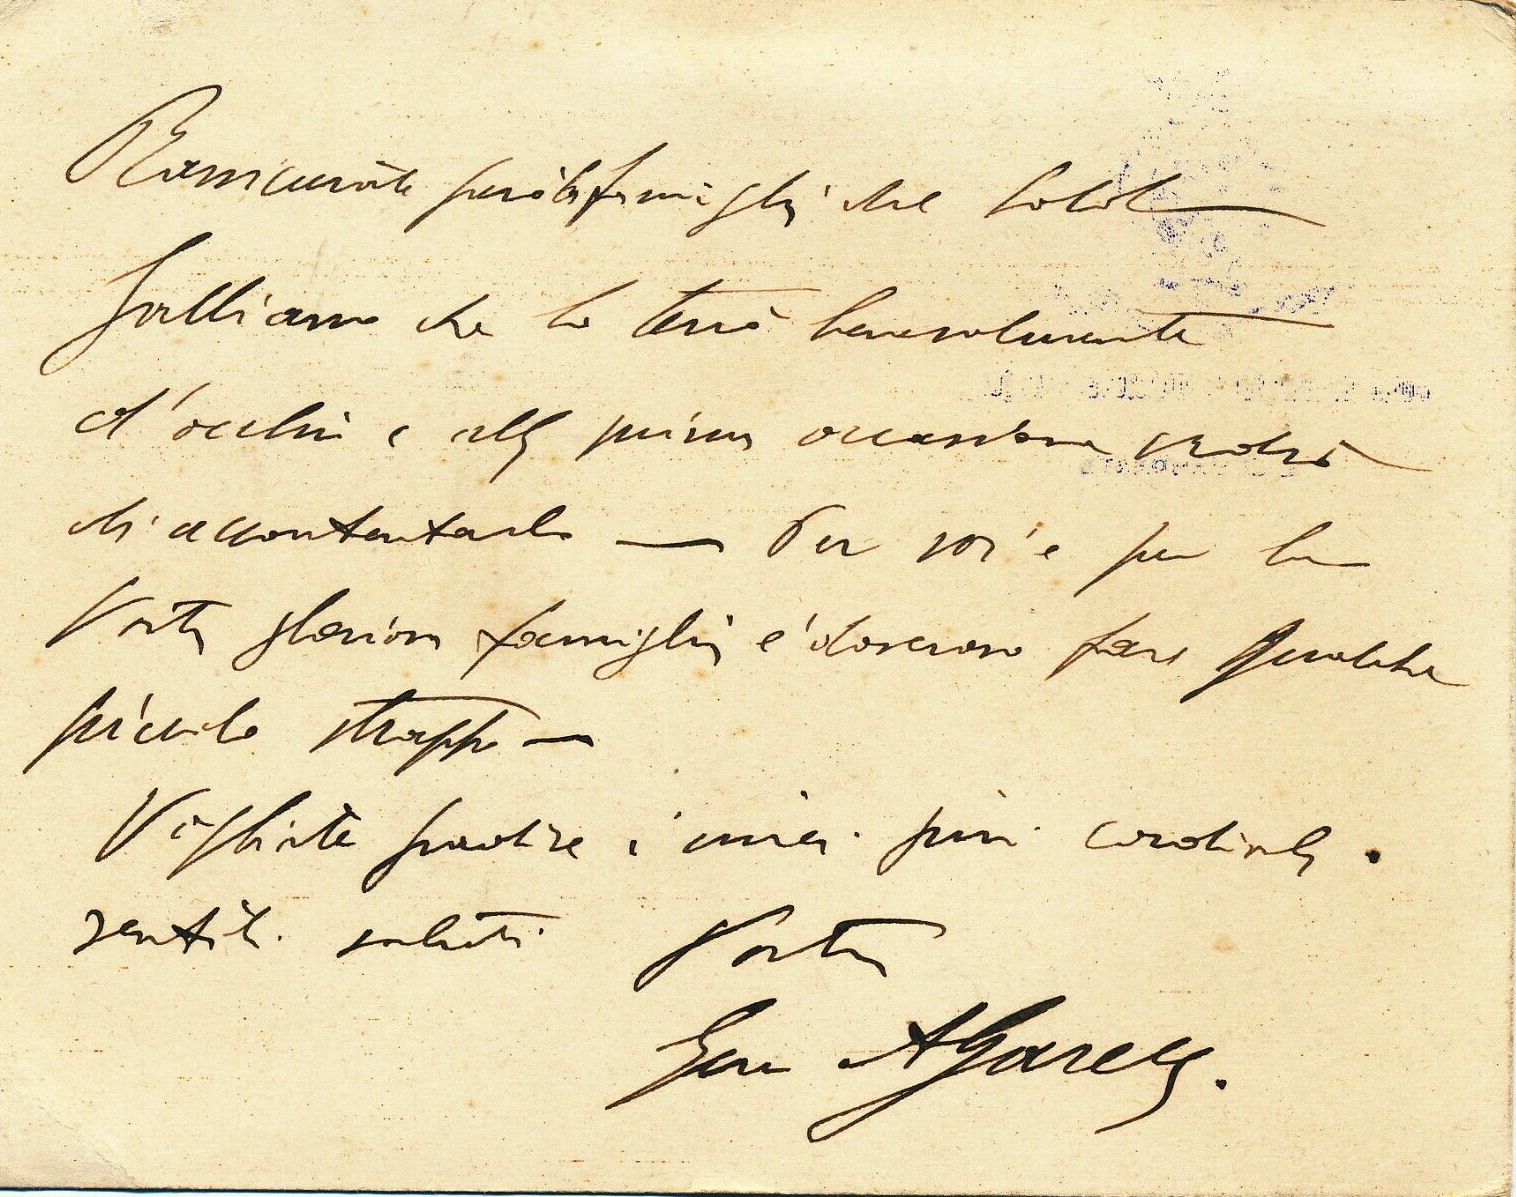 Rassicurate però la famiglia del Soldato
Galliano che lo terrò benevolmente
d'occhio e alla prima occasione vedrò
di accontentarlo — Per voi e per la
Vostra gloriosa famiglia è doveroso fare qualche
piccolo strappo —
Vogliate gradire i miei più cordiali.
sentiti saluti Vostro
Gen A Garelly.